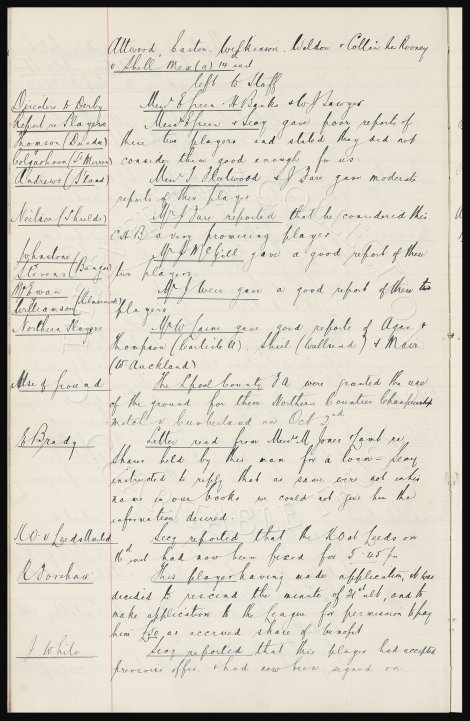 Attwood, Caston, Wilkinson, Weldon & Collin he Rooney
v Shell Mex (a) 14 inst
left to Staff
Directors to Derby Messrs E Green, H Banks & W J Sawyer
Report re Players Messrs Green & Secy gave poor reports of
Thomson (Dundee) these two players and stated they did not
Colquhoun (St Mirren) consider them good enough for us.
Andrews (S'land) Messrs T Fleetwood & J Fare gave moderate
reports of this player
Neilson (Shields) Mr J Fare reported that he considered this
C.H.B. a very promising player
Johnston
Stevens (Bangor) Mr J McGill gave a good report of these
two players
McEwan
Williamson Mr J Weir gave a good report of these two
players
Northern Players Mr W Laine gave good reports of Agar &
Thompson (Carlisle U), Shiel (Wallsend) & Mair
(W Auckland)
Use of Ground The L'pool County F A were granted the use
of the ground for their Northern Counties Championship
match v Cumberland on Oct 2nd
E Brady Letter read from Messrs M Jones & Lamb re
shares held by this man for a loan – Secy
instructed to reply that as same were not in his
name in our books we could not give him the
information desired.
K.O. v Leeds United Secy reported that the KO at Leeds on
16th inst had now been fixed for 5.45 pm
R Forshaw This player having made application, it was
decided to rescind the minute of 21st ult, and to
make application to the League for permission to pay
him as accrued share of benefit
J White Secy reported that this player had accepted
previous offer & had now been signed on